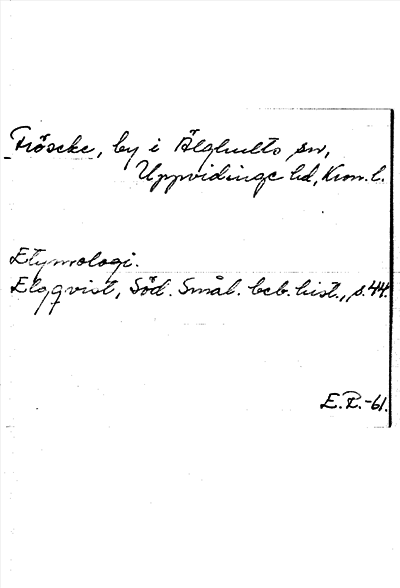 Fröseke, by i Älghults sn,
Uppvidinge hd, Kron. l.
Etymologi.
Elgqvist, Söd. Smål. beb. hist., s. 44.
E. P. -61.